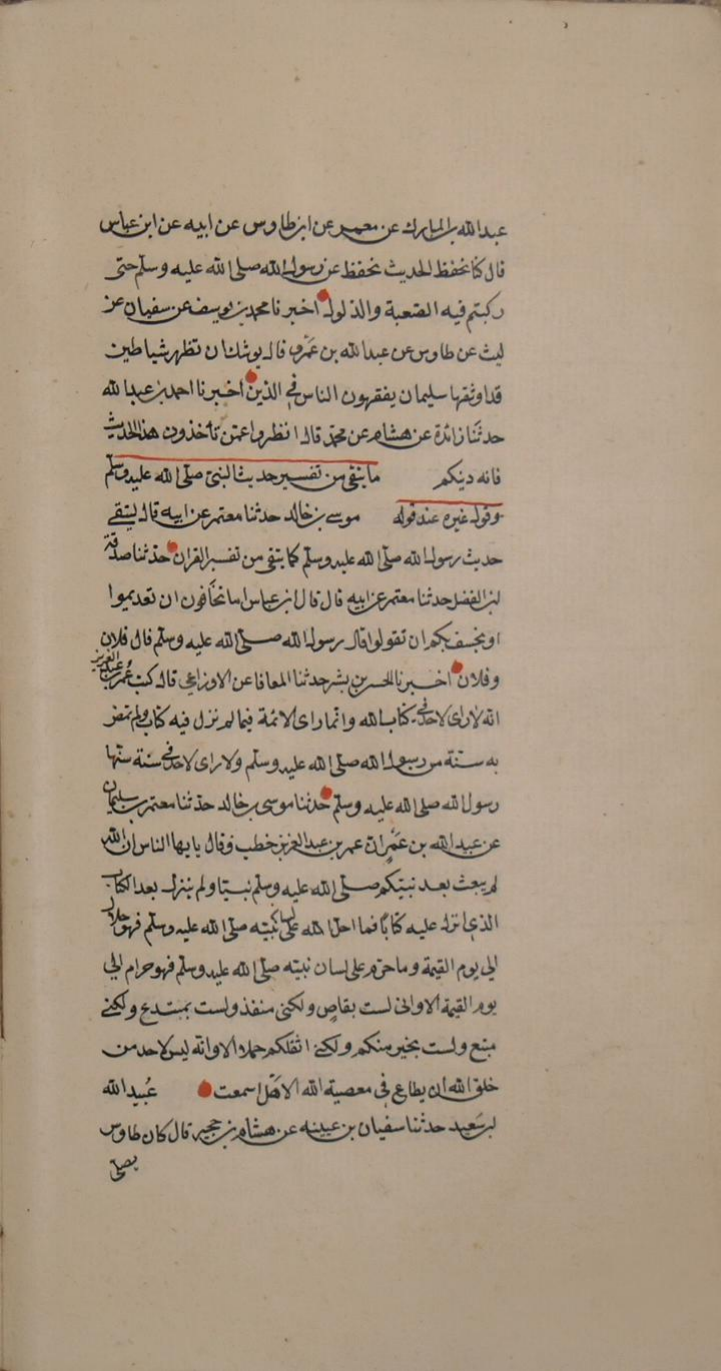 عبد الله بن المبارك عن معمر عن ابن طاوس عن ابيه عن ابن عباس
قال كنا نحفظ الحديث نحفظ عن رسول الله صلى الله عليه وسلم حتى
ركبتم فيه الصعبة والذلول اخبرنا محمد بن يوسف عن سفيان عن
ليث عن طاوس عن عبد الله بن عمرو قال يوشك ان تظهر شياطين
قد اوثقها سليمان يفقهون الناس في الدين اخبرنا احمد بن عبد الله
حدثنا زائدة عن هشام عن محمد قال انظروا عمن تأخذون هذا الحديث
فانه دينكم ما يتقى من تفسير حديث النبي صلى الله عليه وسلم
وقول غيره عند قوله موسى بن خالد حدثنا معتمر عن ابيه قال ليتقى
حديث رسول الله صلى الله عليه وسلم كما يتقى من تفسير القران حدثنا صدقة
ابن الفضل حدثنا معتمر عن ابيه قال قال ابن عباس اما تخافون ان تعذبوا
او يخسف بكم ان تقولوا قال رسول الله صلى الله عليه وسلم قال فلان
وفلان اخبرنا الحسن بن بشر حدثنا المعافا عن الاوزاعي قال كتب عمر بن عبد العزيز
انه لا راى لاحد في كتاب الله وانما راى الائمة فيما لم نزل فيه كتاب ولم تمض
به سنة من رسول الله صلى الله عليه وسلم ولا راى لاحد في سنة سنها
رسول الله صلى الله عليه وسلم حدثنا موسى بن خالد حدثنا معتمر بن سليمان
عن عبيد الله بن عمر ان عمر بن عبد العزيز خطب فقال يا يها الناس ان الله
لم يبعث بعد نبيكم صلى الله عليه وسلم نبيا ولم ينزل بعد الكتاب
الذي انزل عليه كتابا فما احل الله على لسان نبيه صلى الله عليه وسلم فهو حلال
الى يوم القيمة وما حرم على لسان نبيه صلى الله عليه وسلم فهو حرام الى
يوم القيمة الا واني لست بقاص ولكني منفذ ولست بمبتدع ولكني
متبع ولست بخير منكم ولكني اثقلكم حملا الا وانه ليس لاحد من
خلق الله ان يطاع في معصية الله الا هل اسمعت عبيد الله
ابن سعيد حدثنا سفيان بن عيينه عن هشام بن حجير قال كان طاوس
يصلى